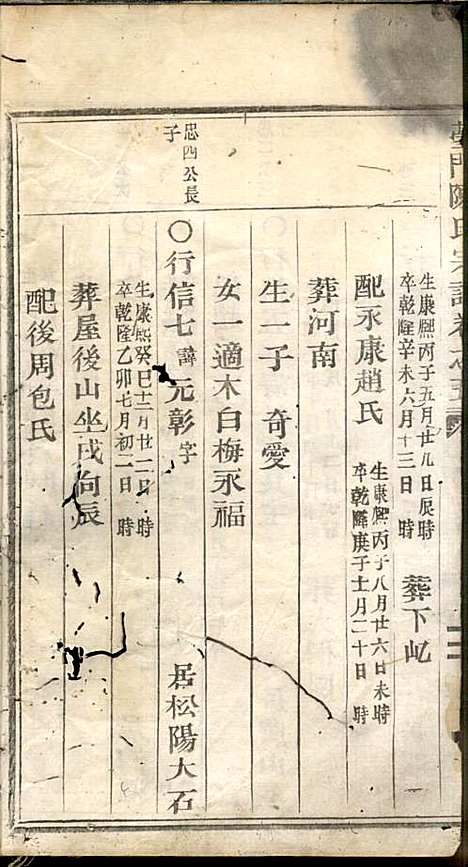 陳氏宗譜卷之五
生康熙丙子五月廿九日辰時
卒乾隆辛未六月十三日　時
葬下屺
配永康趙氏
生康熙丙子八月廿六日未時
卒乾隆庚子十一月二十日　時
葬河南
生一子　奇愛
女一適木白梅永福
忠四公長子
〇行信七諱元彰字
居松陽大石
生康熙癸巳十二月廿二日　時
卒乾隆乙卯七月初二日　時
葬屋後山坐戌向辰
配後周包氏